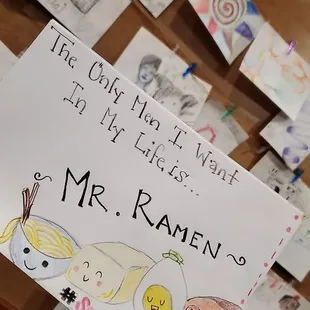 The Only Men I Want
In My Life is...
~ MR. RAMEN ~